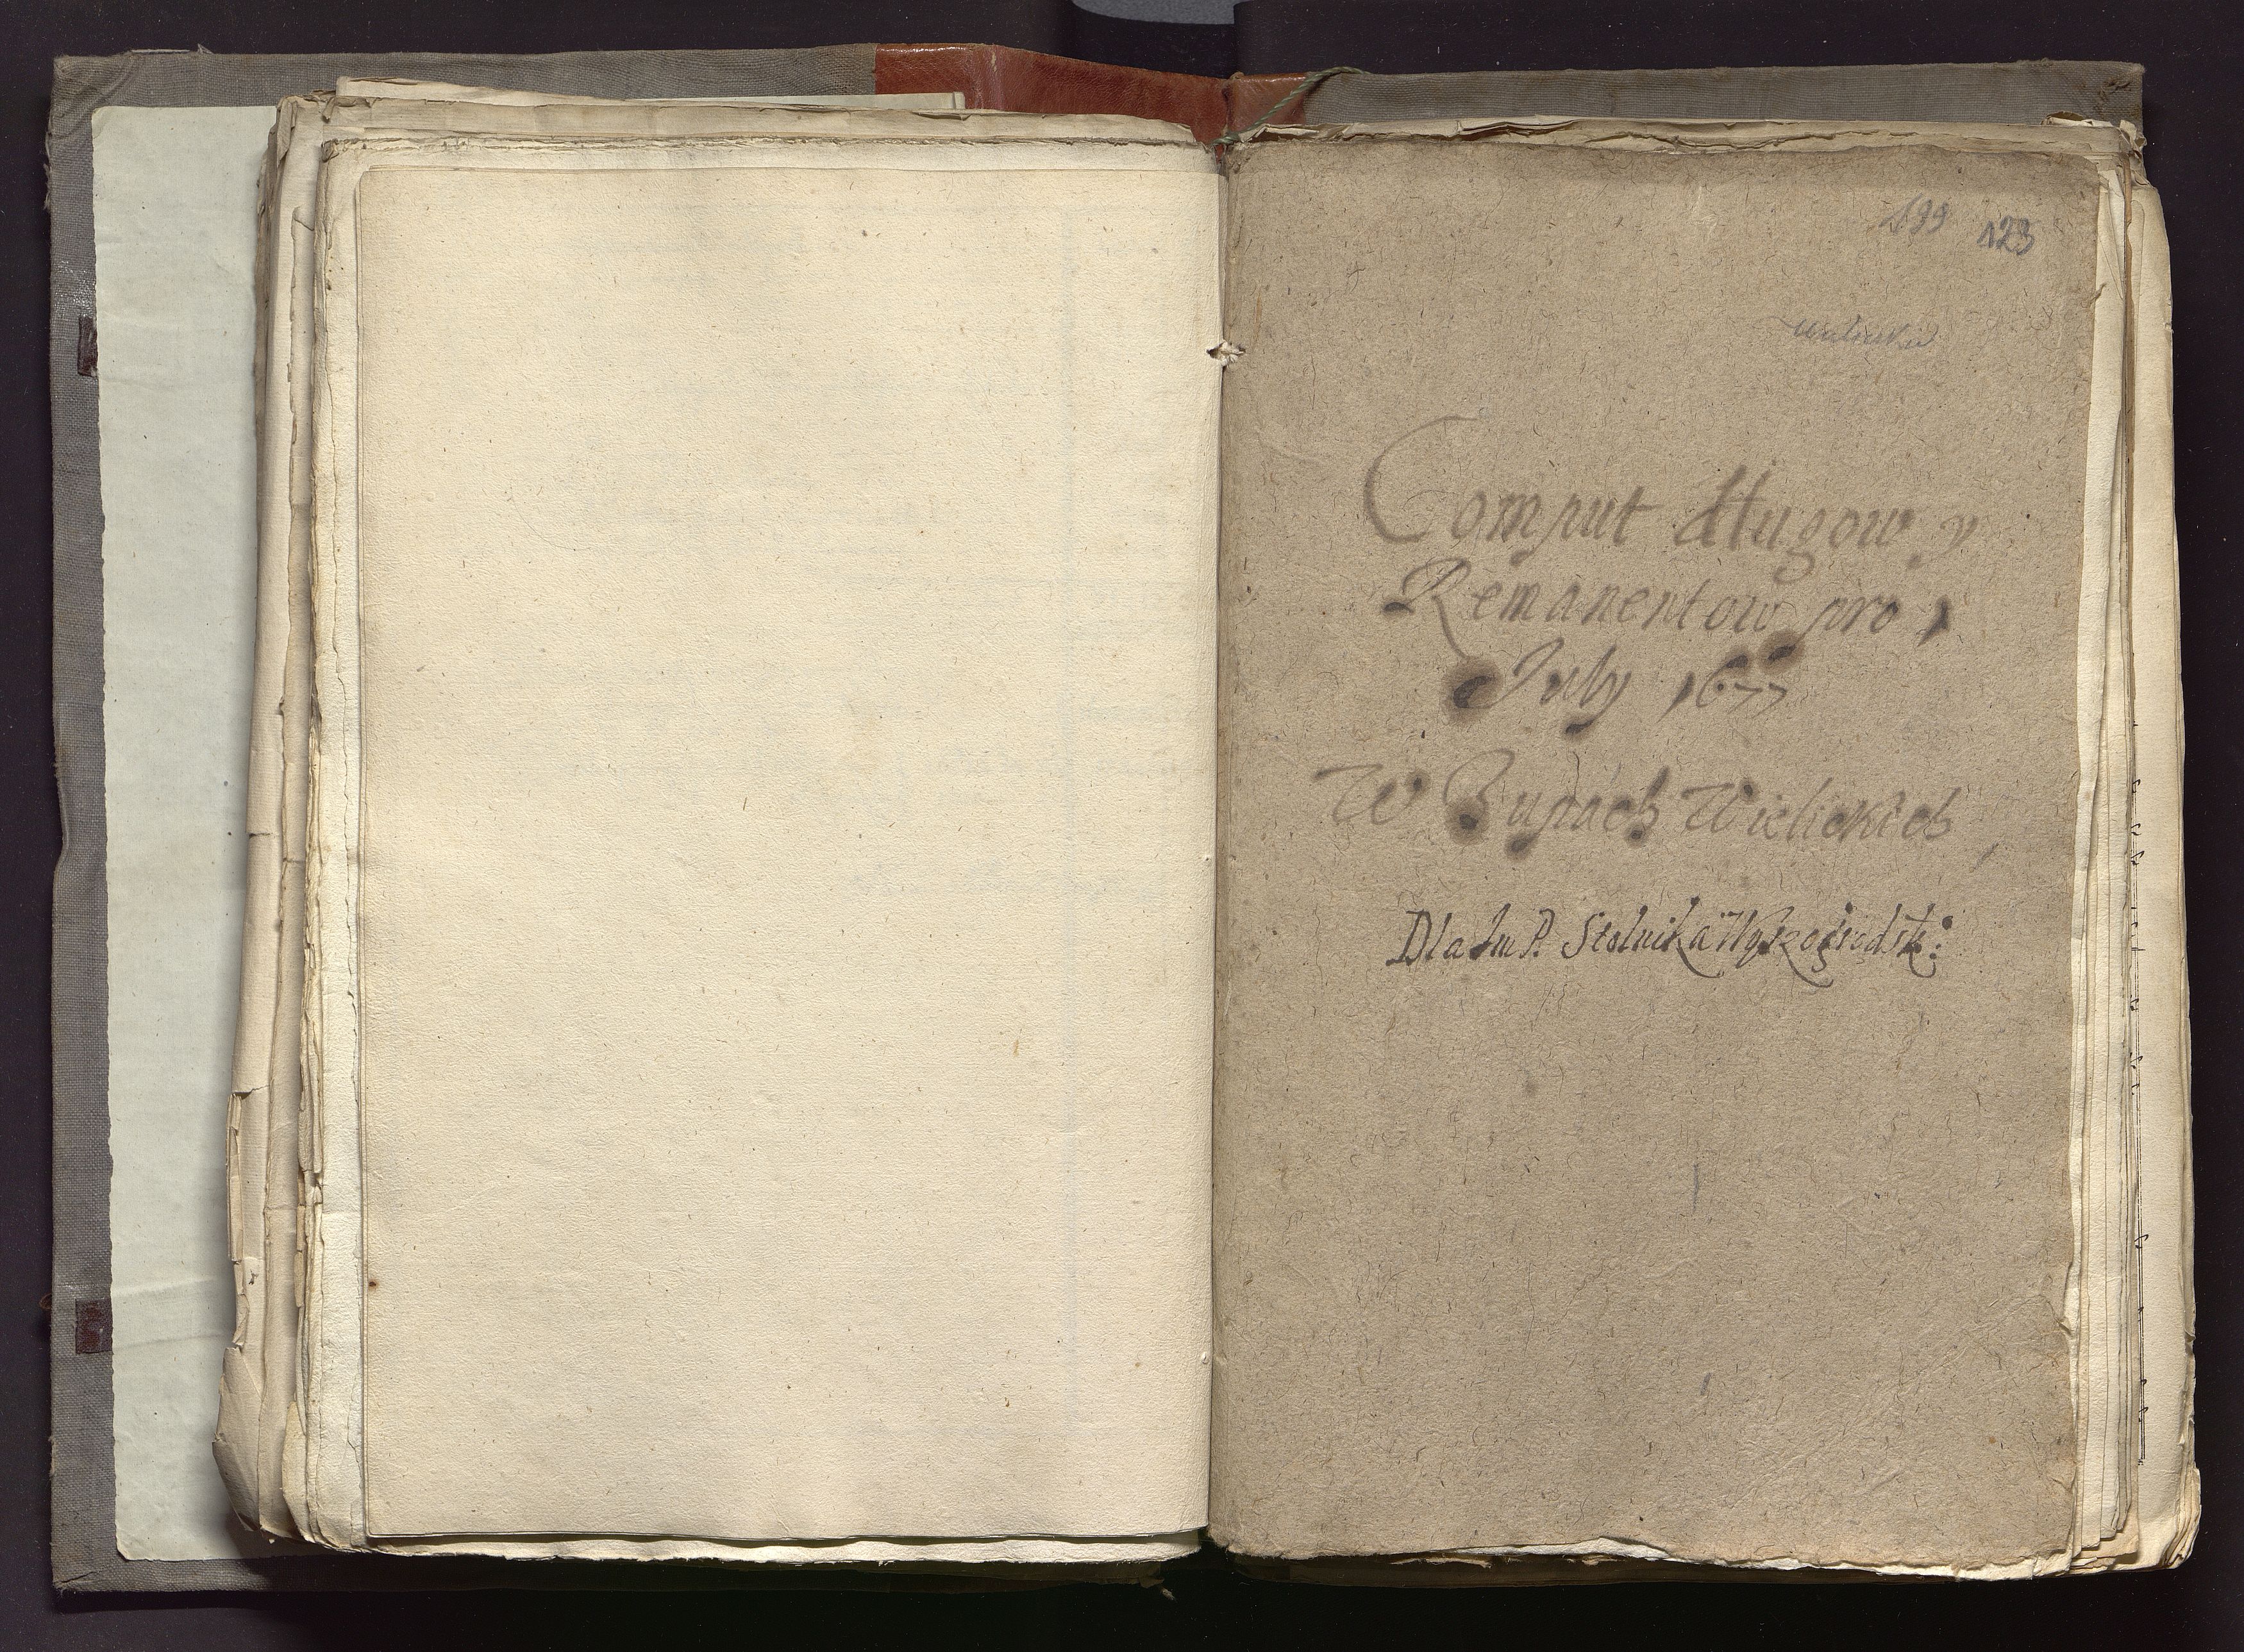 199 123
Comput długow y
Remanentow pro 1
July 1677
W Zupach Wielickich
Dla Jm P. Stolnika Wyszogrodsk: